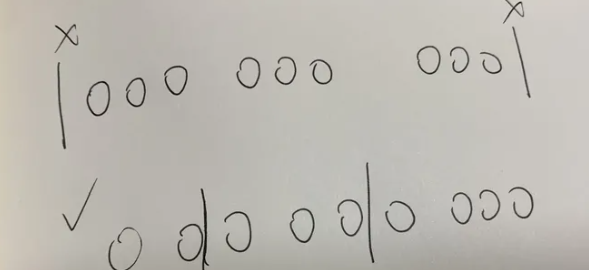 × ×
| 0 0 0 0 0 0 0 0 0 |
✓ 0 0 | 0 0 0 | 0 0 0 0